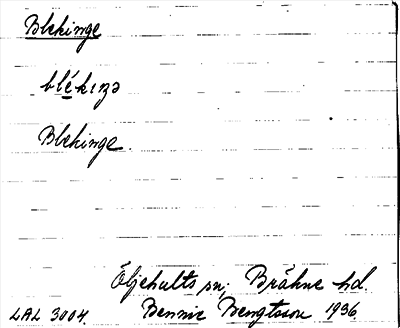 Blekinge
blékɪŋə
Blekinge.
Öljehults sn; Bräkne hd.
LAL 3004. Bennie Bengtsson 1936.